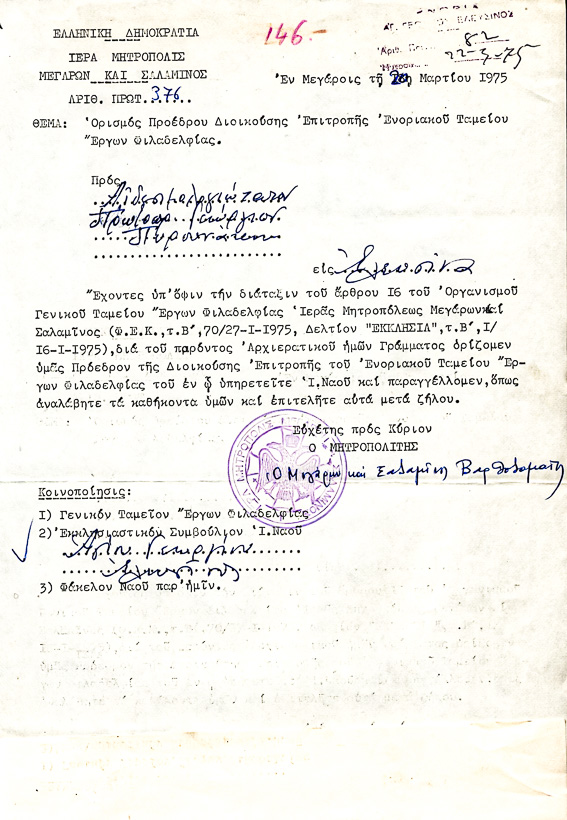 ΕΛΛΗΝΙΚΗ ΔΗΜΟΚΡΑΤΙΑ
ΙΕΡΑ ΜΗΤΡΟΠΟΛΙΣ
ΜΕΓΑΡΩΝ ΚΑΙ ΣΑΛΑΜΙΝΟΣ
ΑΡΙΘ. ΠΡΩΤ. 376.
146.-
ΕΛΕΥΣΙΝΟΣ
82
22-3-75
Ἐν Μεγάροις τῇ 20ῃ Μαρτίου 1975
ΘΕΜΑ: Ὁρισμός Προέδρου Διοικούσης Ἐπιτροπῆς Ἐνοριακοῦ Ταμείου
Ἔργων Φιλαδελφίας.
Πρός
Γεώργιον
εἰς Ἐλευσῖνα
Ἔχοντες ὑπ'ὄψιν τήν διάταξιν τοῦ ἄρθρου I6 τοῦ Ὀργανισμοῦ
Γενικοῦ Ταμείου Ἔργων Φιλαδελφίας Ἱερᾶς Μητροπόλεως Μεγάρων καί
Σαλαμῖνος (Φ.Ε.Κ.,τ.Β',70/27-I-I975, Δελτίον "ΕΚΚΛΗΣΙΑ",τ.Β',I/
I6-I-I975),διά τοῦ παρόντος Ἀρχιερατικοῦ ἡμῶν Γράμματος ὁρίζομεν
ὑμᾶς Πρόεδρον τῆς Διοικούσης Ἐπιτροπῆς τοῦ Ἐνοριακοῦ Ταμείου Ἔρ-
γων Φιλαδελφίας τοῦ ἐν ᾧ ὑπηρετεῖτε Ἱ.Ναοῦ καί παραγγέλλομεν,ὅπως
ἀναλάβητε τά καθήκοντα ὑμῶν καί ἐπιτελῆτε αὐτά μετά ζήλου.
Εὐχέτης πρός Κύριον
Ο ΜΗΤΡΟΠΟΛΙΤΗΣ
Ὁ Μεγάρων καί Σαλαμῖνος Βαρθολομαῖος
Κοινοποίησις:
I) Γενικόν Ταμεῖον Ἔργων Φιλαδελφίας
2) Ἐκκλησιαστικόν Συμβούλιον Ἱ.Ναοῦ
Ἁγίου Γεωργίου
Ἐλευσῖνος
3) Φάκελον Ναοῦ παρ'ἡμῖν.